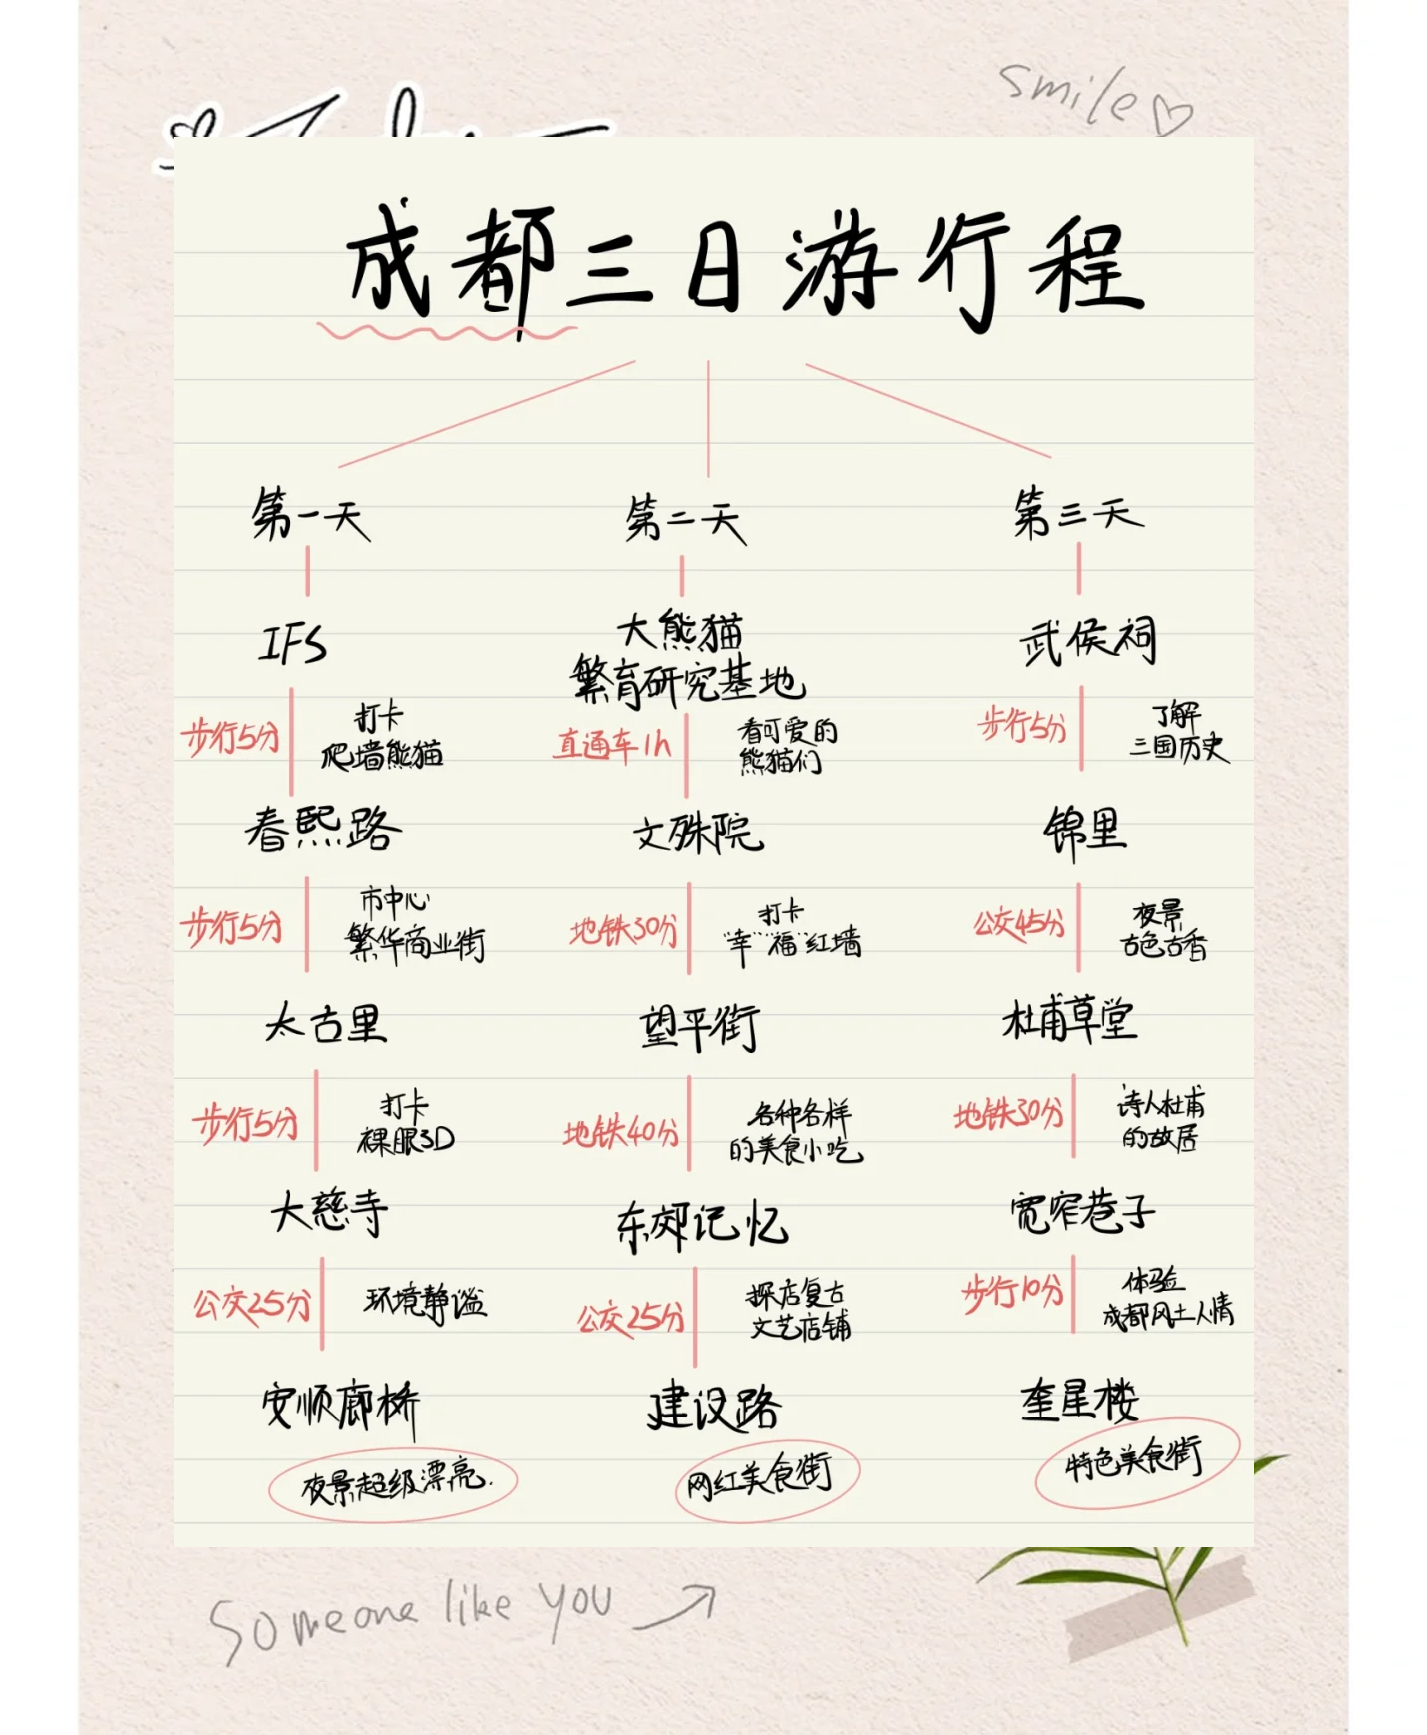 smile
成都三日游行程
第一天
IFS
步行5分
打卡
爬墙熊猫
春熙路
步行5分
市中心
繁华商业街
太古里
步行5分
打卡
裸眼3D
大慈寺
公交25分
环境静谧
安顺廊桥
夜景超级漂亮.
第二天
大熊猫
繁育研究基地
直通车1h
看可爱的
熊猫们
文殊院
地铁30分
打卡
"幸福"红墙
望平街
地铁40分
各种各样
的美食小吃
东郊记忆
公交25分
探店复古
文艺店铺
建设路
网红美食街
第三天
武侯祠
步行5分
了解
三国历史
锦里
公交45分
夜景
古色古香
杜甫草堂
地铁30分
诗人杜甫
的故居
宽窄巷子
步行10分
体验
成都风土人情
奎星楼
特色美食街
Someone like you